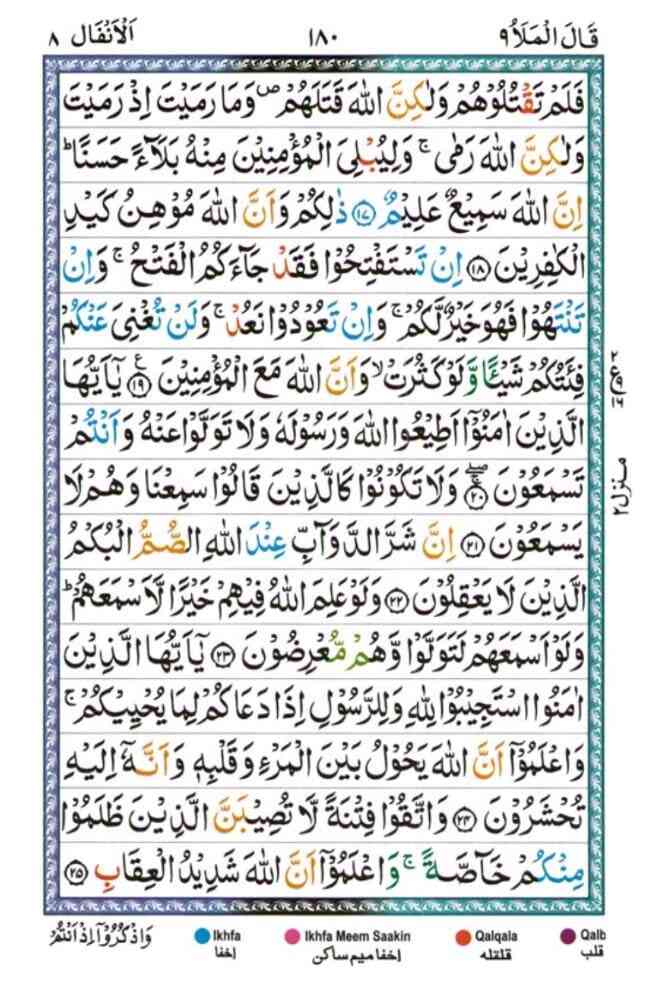 قَالَ الْمَلَاُ ۹ ۱۸۰ اَلْاَنْفَال ۸
فَلَمْ تَقْتُلُوْهُمْ وَلٰكِنَّ اللّٰهَ قَتَلَهُمْ ۪ وَمَا رَمَيْتَ اِذْ رَمَيْتَ
وَلٰكِنَّ اللّٰهَ رَمٰى ۚ وَلِيُبْلِىَ الْمُؤْمِنِيْنَ مِنْهُ بَلَآءً حَسَنًا ؕ
اِنَّ اللّٰهَ سَمِيْعٌ عَلِيْمٌ ۝۱۷ ذٰلِكُمْ وَاَنَّ اللّٰهَ مُوْهِنُ كَيْدِ
الْكٰفِرِيْنَ ۝۱۸ اِنْ تَسْتَفْتِحُوْا فَقَدْ جَآءَكُمُ الْفَتْحُ ۚ وَاِنْ
تَنْتَهُوْا فَهُوَ خَيْرٌ لَّكُمْ ۚ وَاِنْ تَعُوْدُوْا نَعُدْ ۚ وَلَنْ تُغْنِىَ عَنْكُمْ
فِئَتُكُمْ شَيْـًٔا وَّلَوْ كَثُرَتْ ۙ وَاَنَّ اللّٰهَ مَعَ الْمُؤْمِنِيْنَ ۝۱۹ ع يٰۤاَيُّهَا
الَّذِيْنَ اٰمَنُوْۤا اَطِيْعُوا اللّٰهَ وَرَسُوْلَهٗ وَلَا تَوَلَّوْا عَنْهُ وَاَنْتُمْ
تَسْمَعُوْنَ ۝۲۰ وَلَا تَكُوْنُوْا كَالَّذِيْنَ قَالُوْا سَمِعْنَا وَهُمْ لَا
يَسْمَعُوْنَ ۝۲۱ اِنَّ شَرَّ الدَّوَآبِّ عِنْدَ اللّٰهِ الصُّمُّ الْبُكْمُ
الَّذِيْنَ لَا يَعْقِلُوْنَ ۝۲۲ وَلَوْ عَلِمَ اللّٰهُ فِيْهِمْ خَيْرًا لَّاَسْمَعَهُمْ ؕ
وَلَوْ اَسْمَعَهُمْ لَتَوَلَّوْا وَّهُمْ مُّعْرِضُوْنَ ۝۲۳ يٰۤاَيُّهَا الَّذِيْنَ
اٰمَنُوا اسْتَجِيْبُوْا لِلّٰهِ وَلِلرَّسُوْلِ اِذَا دَعَاكُمْ لِمَا يُحْيِيْكُمْ ۚ
وَاعْلَمُوْۤا اَنَّ اللّٰهَ يَحُوْلُ بَيْنَ الْمَرْءِ وَقَلْبِهٖ وَاَنَّهٗۤ اِلَيْهِ
تُحْشَرُوْنَ ۝۲۴ وَاتَّقُوْا فِتْنَةً لَّا تُصِيْبَنَّ الَّذِيْنَ ظَلَمُوْا
مِنْكُمْ خَآصَّةً ۚ وَاعْلَمُوْۤا اَنَّ اللّٰهَ شَدِيْدُ الْعِقَابِ ۝۲۵
منزل ۲
وَاذْكُرُوْۤا اِذْ اَنْتُمْ
Ikhfa Ikhfa Meem Saakin Qalqala Qalb
إخفا إخفا ميم ساكن قلقله قلب